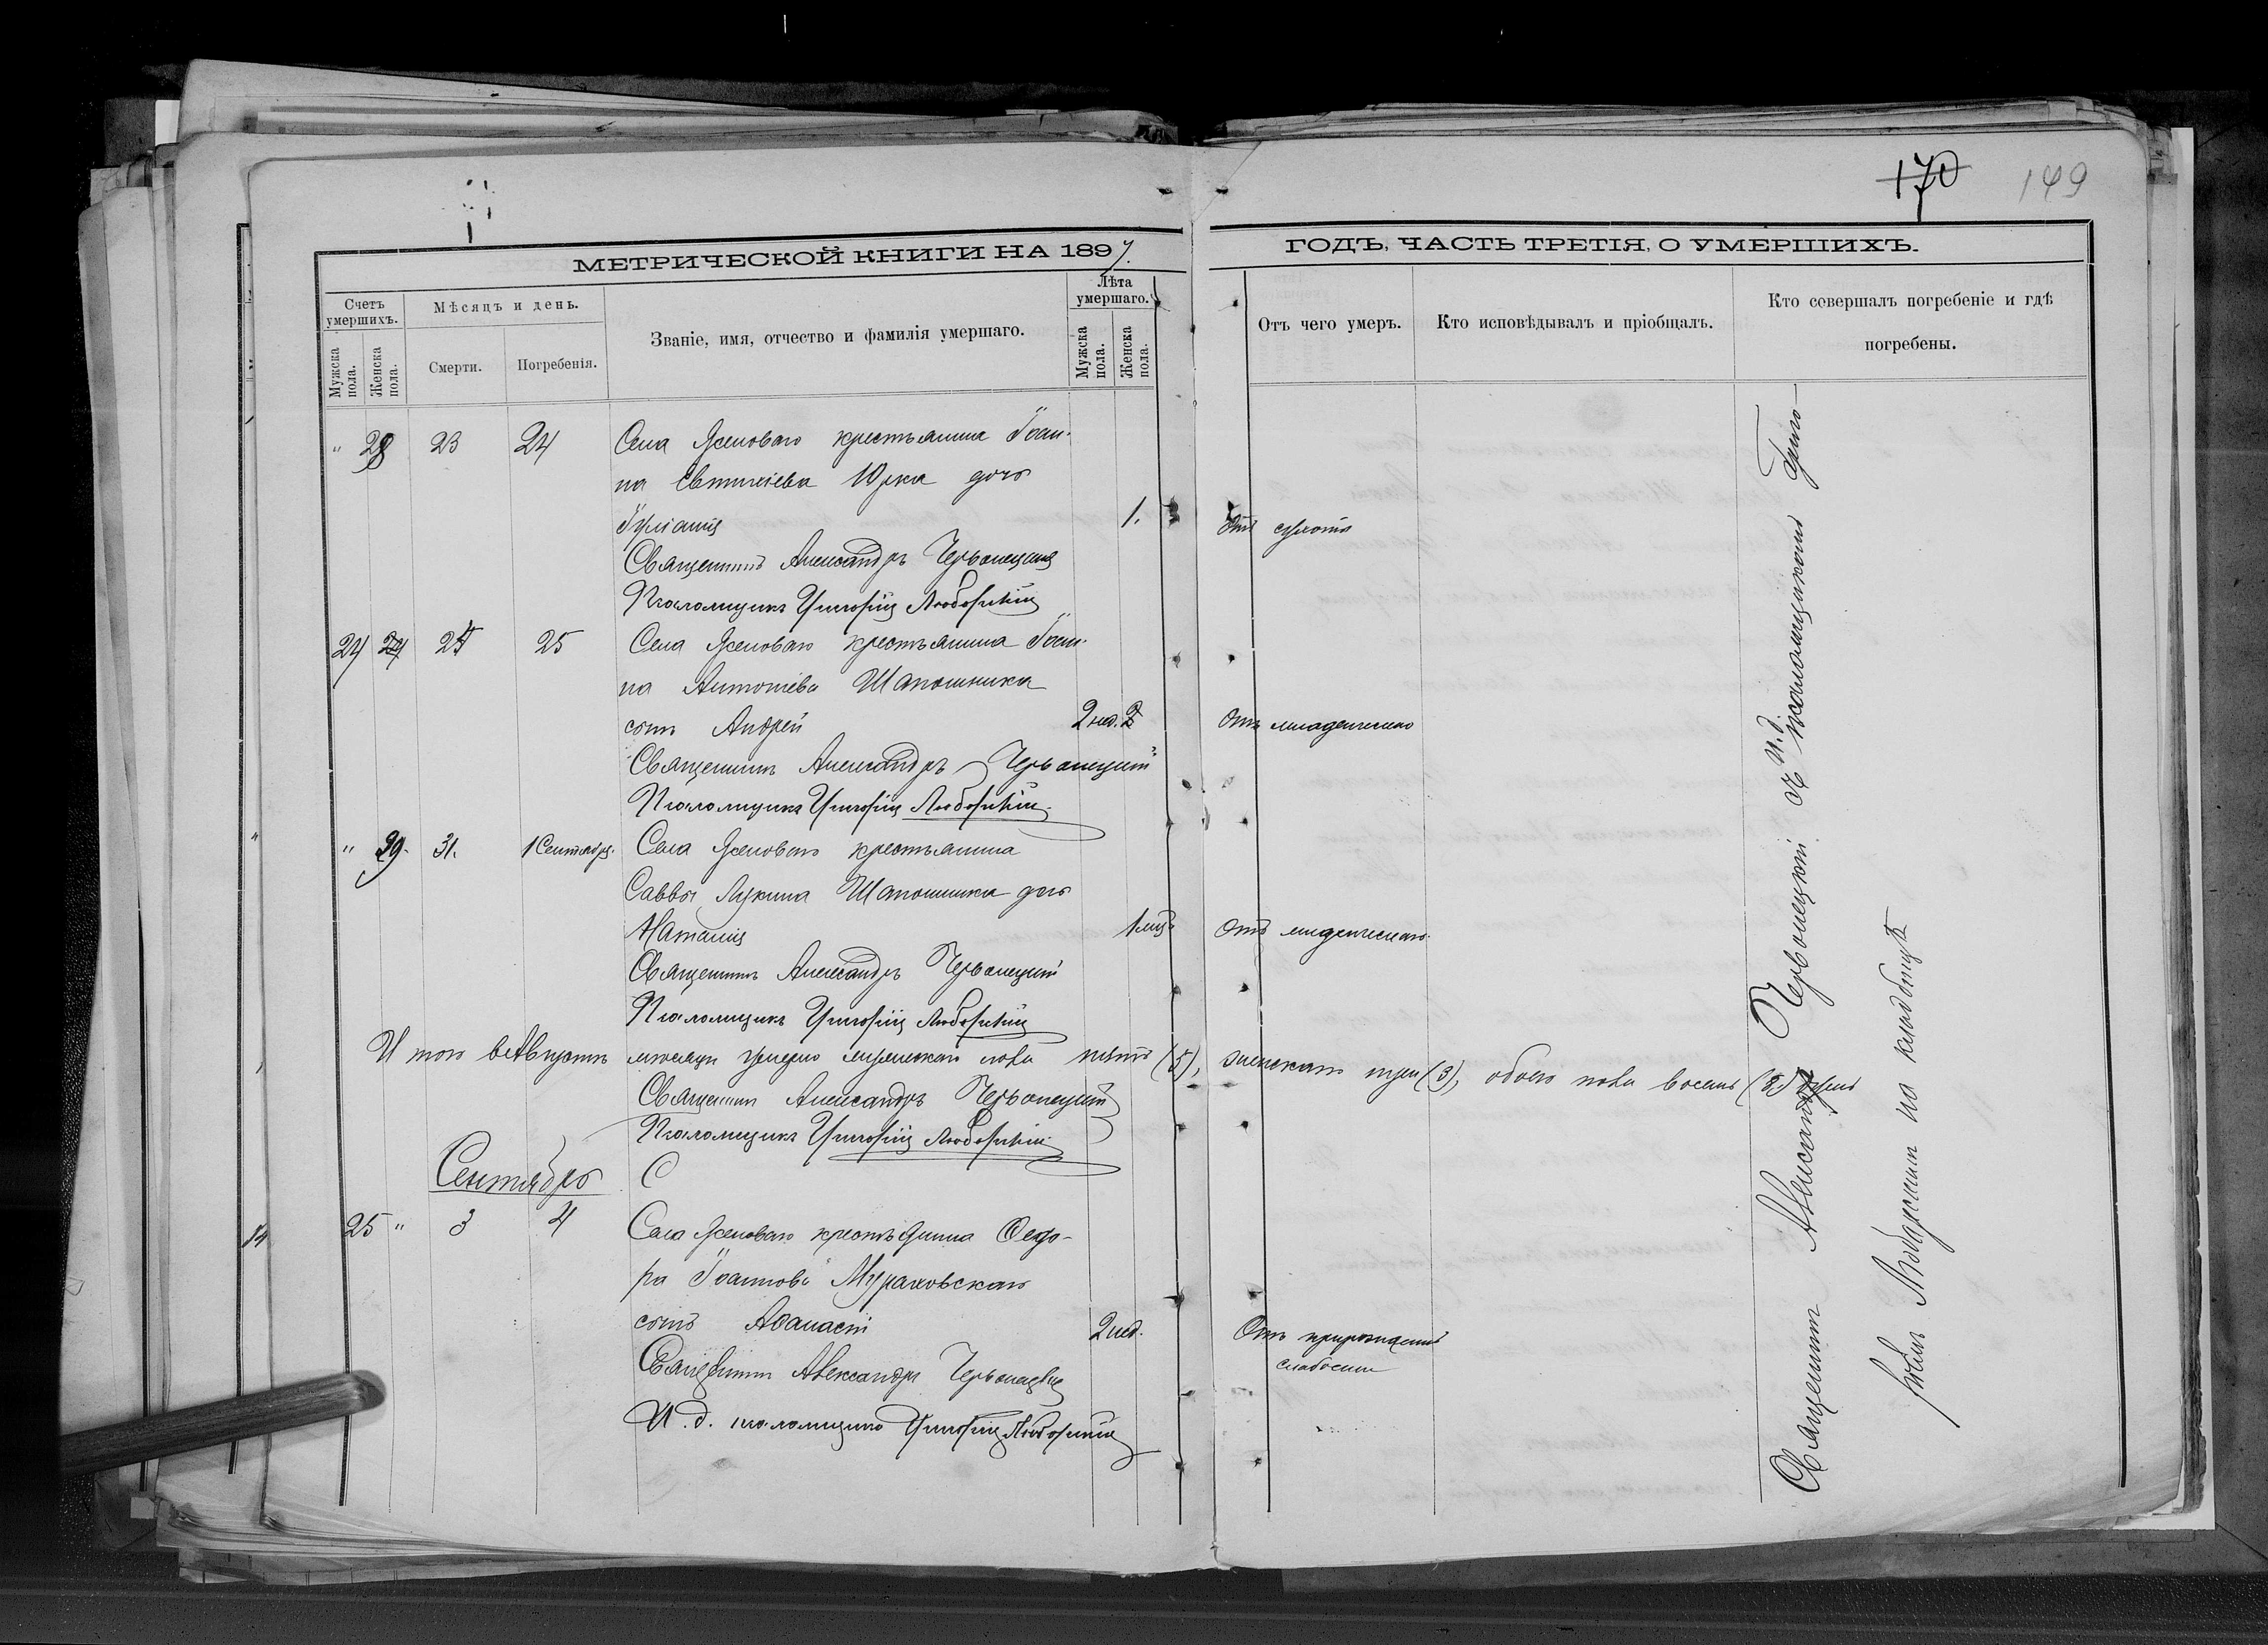 170 149
МЕТРИЧЕСКОЙ КНИГИ НА 1897. ГОДЪ, ЧАСТЬ ТРЕТІЯ, О УМЕРШИХЪ.
Счетъ умершихъ.
Мужска пола.
Женска пола.
Мѣсяцъ и день.
Смерти.
Погребенія.
Званіе, имя, отчество и фамилія умершаго.
Лѣта умершаго.
Мужска пола.
Женска пола.
Отъ чего умеръ.
Кто исповѣдывалъ и пріобщалъ.
Кто совершалъ погребеніе и гдѣ
погребены.
" 28 23 24 Села Ясеноваго крестьянина Іоан-
на Евтихіева Юрка дочь
Іуліанія 1. Отъ сухотъ
Священникъ Александръ Червонецкій
Псаломщикъ Григорій
24 24 25 Села Ясеноваго крестьянина Іоан-
на Антоніева Шапошника
сынъ Андрей 2 нед. Отъ младенческаго
Священникъ Александръ Червонецкій
Псаломщикъ Григорій
" 29. 31. 1 Сентябр. Села Ясеноваго крестьянина
Саввы Лукина Шапошника дочь
Наталія 1 мѣс. Отъ младенческаго.
Священникъ Александръ Червонецкій
Псаломщикъ Григорій
Итого въ Августѣ мѣсяцѣ умерло мужескаго пола пять (5), женскаго три (3), обоего пола восемь (8) душъ
Священникъ Александръ Червонецкій
Псаломщикъ Григорій
Сентябрь С
25 " 3 4 Села Ясеноваго крестьянина Ѳедо-
ра Іоаннова Мураховскаго
сынъ Аѳанасій 2 нед. Отъ прирожденной
слабости
Священникъ Александръ Червонецкій
И. д. псаломщика Григорій
Священникъ Александръ Червонецкій съ и. д. псаломщикомъ Григо-
на кладбищѣ